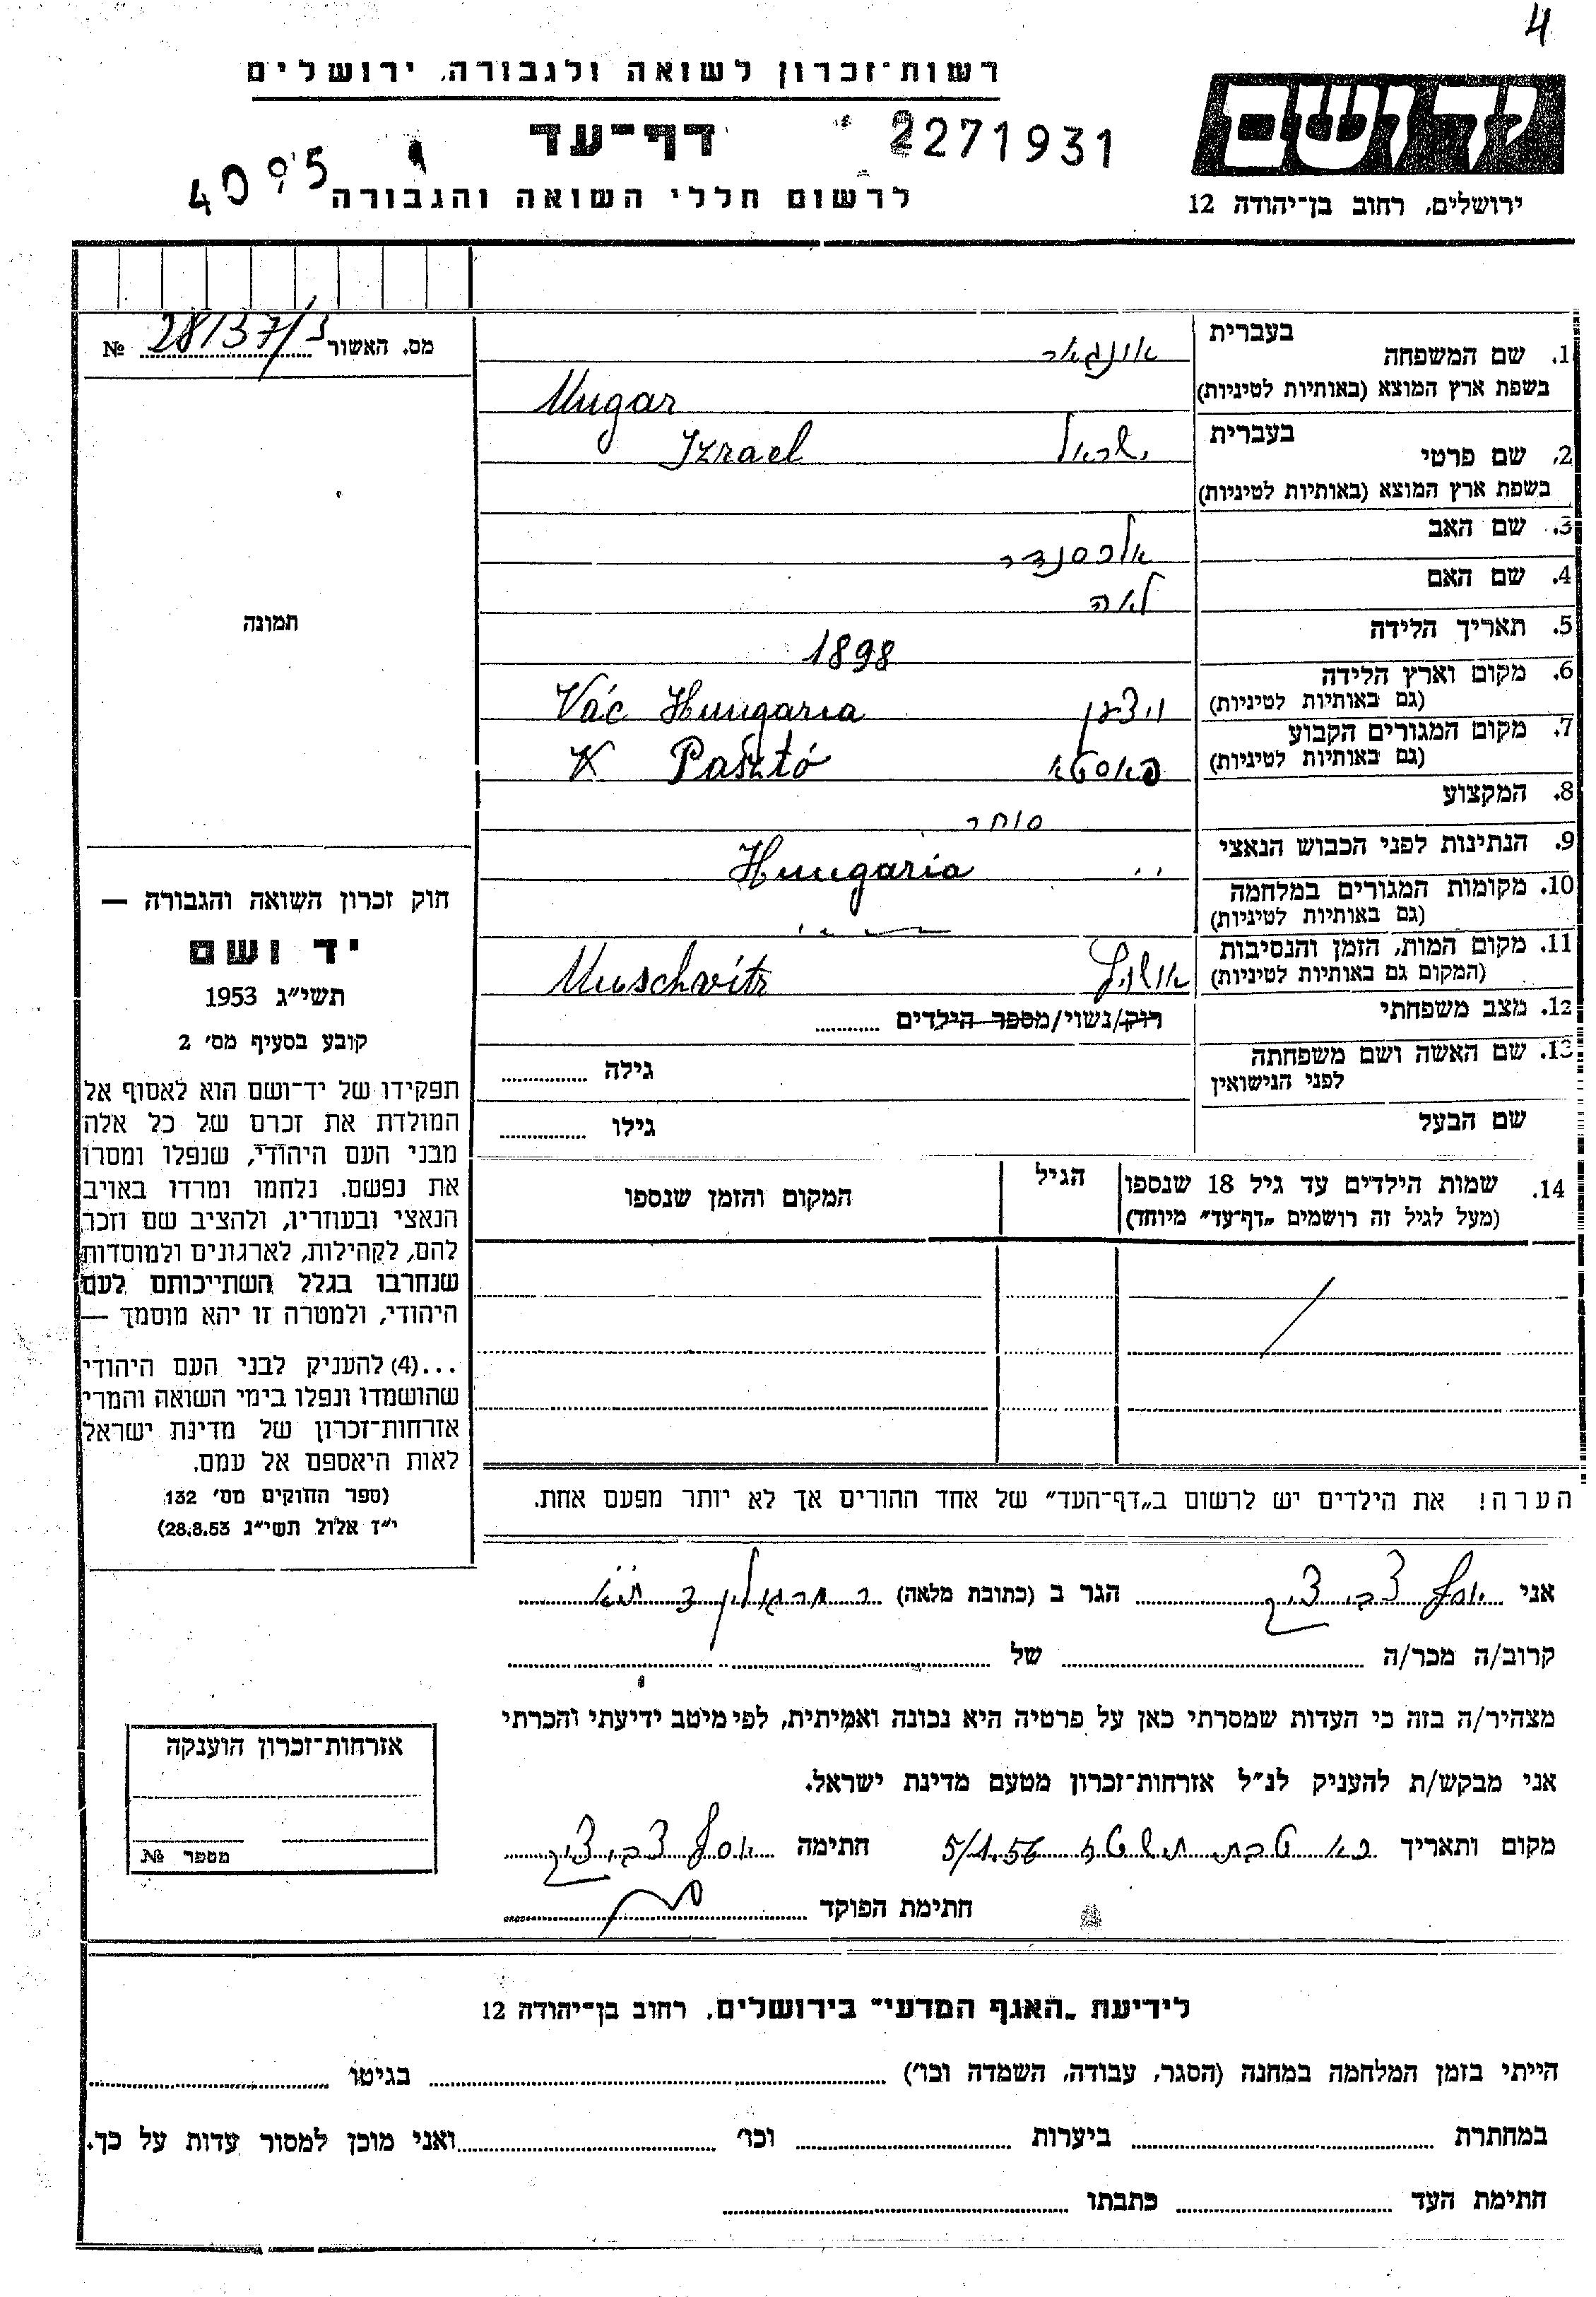 4
רשות־זכרון לשואה ולגבורה, ירושלים
יד ושם
דף־עד
2271931
4095
לרשום חללי השואה והגבורה
ירושלים, רחוב בן־יהודה 12
מס. האשור 28137/3 №
1. שם המשפחה בעברית אונגאר
בשפת ארץ המוצא (באותיות לטיניות) Ungar
2. שם פרטי בעברית ישראל Izrael
בשפת ארץ המוצא (באותיות לטיניות)
3. שם האב אלכסנדר
4. שם האם לאה
5. תאריך הלידה 1898
6. מקום וארץ הלידה ויצען Vác Hungaria
(גם באותיות לטיניות)
7. מקום המגורים הקבוע פאסטא Pasztó K
(גם באותיות לטיניות)
8. המקצוע סוחר
9. הנתינות לפני הכבוש הנאצי Hungaria
10. מקומות המגורים במלחמה
(גם באותיות לטיניות)
11. מקום המות, הזמן והנסיבות Auschvitz
(המקום גם באותיות לטיניות)
12. מצב משפחתי רוק/נשוי/מספר הילדים
13. שם האשה ושם משפחתה גילה
לפני הנישואין
שם הבעל גילו
14. שמות הילדים עד גיל 18 שנספו הגיל המקום והזמן שנספו
(מעל לגיל זה רושמים „דף־עד״ מיוחד)
תמונה
חוק זכרון השואה והגבורה —
יד ושם
תשי״ג 1953
קובע בסעיף מס׳ 2
תפקידו של יד־ושם הוא לאסוף אל
המולדת את זכרם של כל אלה
מבני העם היהודי, שנפלו ומסרו
את נפשם, נלחמו ומרדו באויב
הנאצי ובעוזריו, ולהציב שם וזכר
להם, לקהילות, לארגונים ולמוסדות
שנחרבו בגלל השתייכותם לעם
היהודי, ולמטרה זו יהא מוסמך —
...(4) להעניק לבני העם היהודי
שהושמדו ונפלו בימי השואה והמרי
אזרחות־זכרון של מדינת ישראל
לאות היאספם אל עמם.
(ספר החוקים מס׳ 132
י״ז אלול תשי״ג 28.8.53)
הערה! את הילדים יש לרשום ב„דף־העד״ של אחד ההורים אך לא יותר מפעם אחת.
אני יוסף צבי הגר ב (כתובת מלאה) ת״א
קרוב/ה מכר/ה של
מצהיר/ה בזה כי העדות שמסרתי כאן על פרטיה היא נכונה ואמיתית, לפי מיטב ידיעתי והכרתי
אני מבקש/ת להעניק לנ״ל אזרחות־זכרון מטעם מדינת ישראל.
מקום ותאריך כא טבת תשטז 5/1.56 חתימה יוסף צבי
חתימת הפוקד
אזרחות־זכרון הוענקה
מספר №
לידיעת „האגף המדעי״ בירושלים, רחוב בן־יהודה 12
הייתי בזמן המלחמה במחנה (הסגר, עבודה, השמדה וכו׳) בגיטו
במחתרת ביערות וכו׳ ואני מוכן למסור עדות על כך.
חתימת העד כתבתו